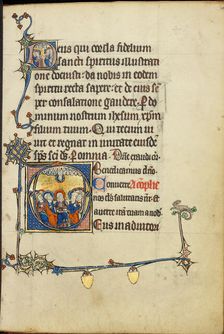 Deus qui corda fidelium
sancti spiritus illustratione
docuisti. da nobis in eodem
spiritu recta sapere. et de eius semper
consolatione gaudere. P do
minum nostrum ihesum xpm
filium tuum. Qui tecum uiuit
et regnat in unitate eiusdem
sps sci ds. P omnia. Dne exaudi
Benedicamus dno.
Conuerte
nos ds salutaris nr. et
auerte iram tuam a nob
Deus in adiutori